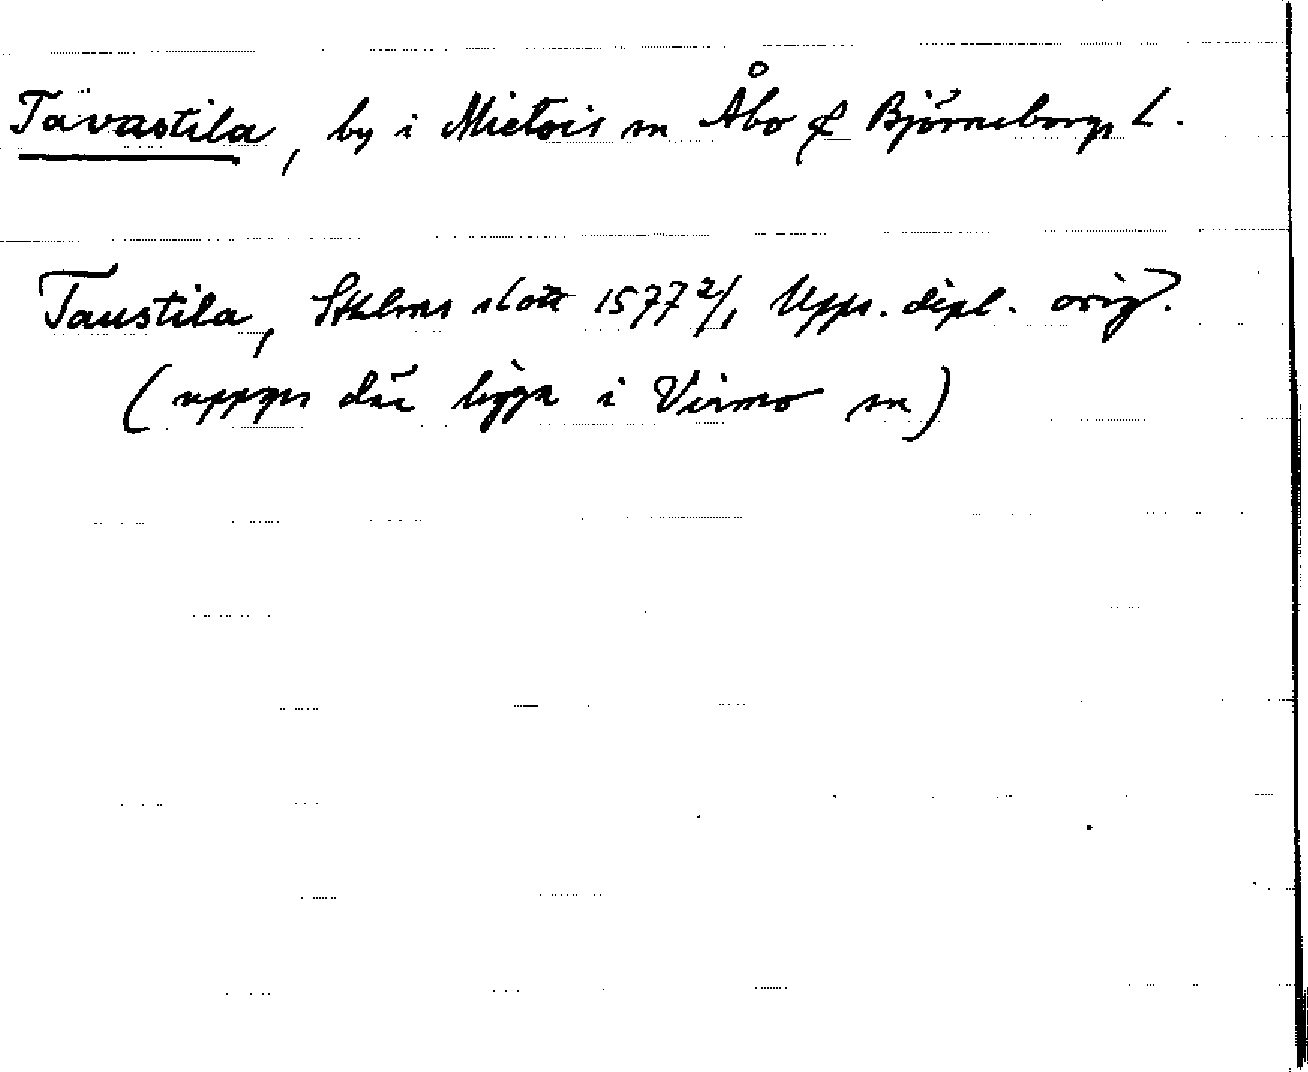 Tavastila, by i Mietois sn Åbo & Björneborgs l.
Taustila, Sthlms slott 1577 2/1 Upps. dipl. orig.
(uppges där ligga i Virmo sn)